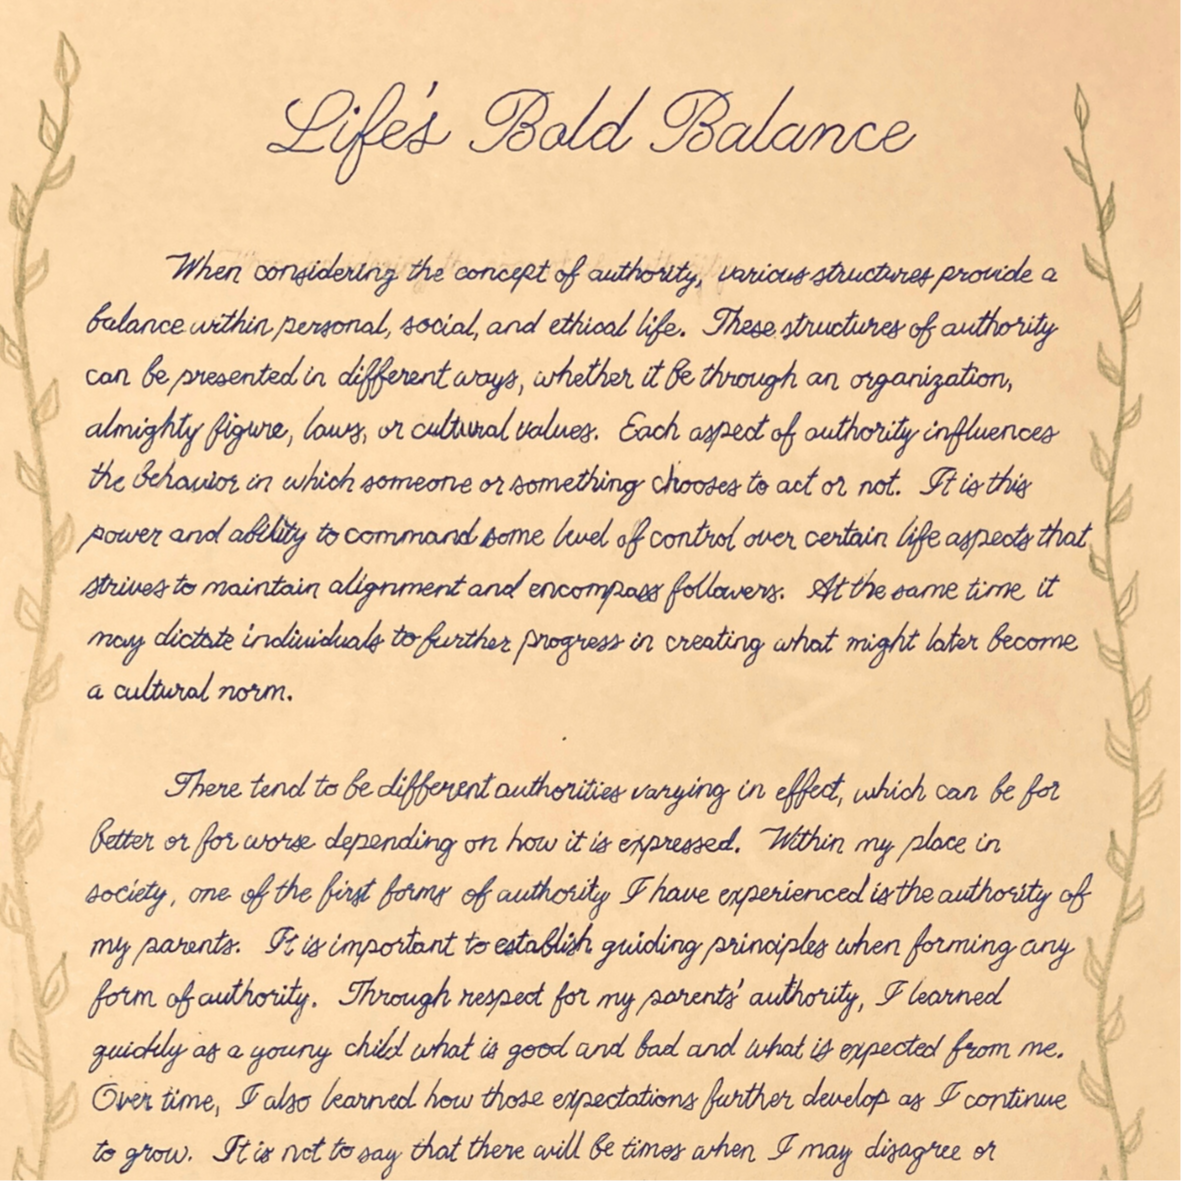 Life's Bold Balance
When considering the concept of authority, various structures provide a
balance within personal, social, and ethical life. These structures of authority
can be presented in different ways, whether it be through an organization,
almighty figure, laws, or cultural values. Each aspect of authority influences
the behavior in which someone or something chooses to act or not. It is this
power and ability to command some level of control over certain life aspects that
strives to maintain alignment and encompass followers. At the same time it
may dictate individuals to further progress in creating what might later become
a cultural norm.
There tend to be different authorities varying in effect, which can be for
better or for worse depending on how it is expressed. Within my place in
society, one of the first forms of authority I have experienced is the authority of
my parents. It is important to establish guiding principles when forming any
form of authority. Through respect for my parents' authority, I learned
quickly as a young child what is good and bad and what is expected from me.
Over time, I also learned how those expectations further develop as I continue
to grow. It is not to say that there will be times when I may disagree or